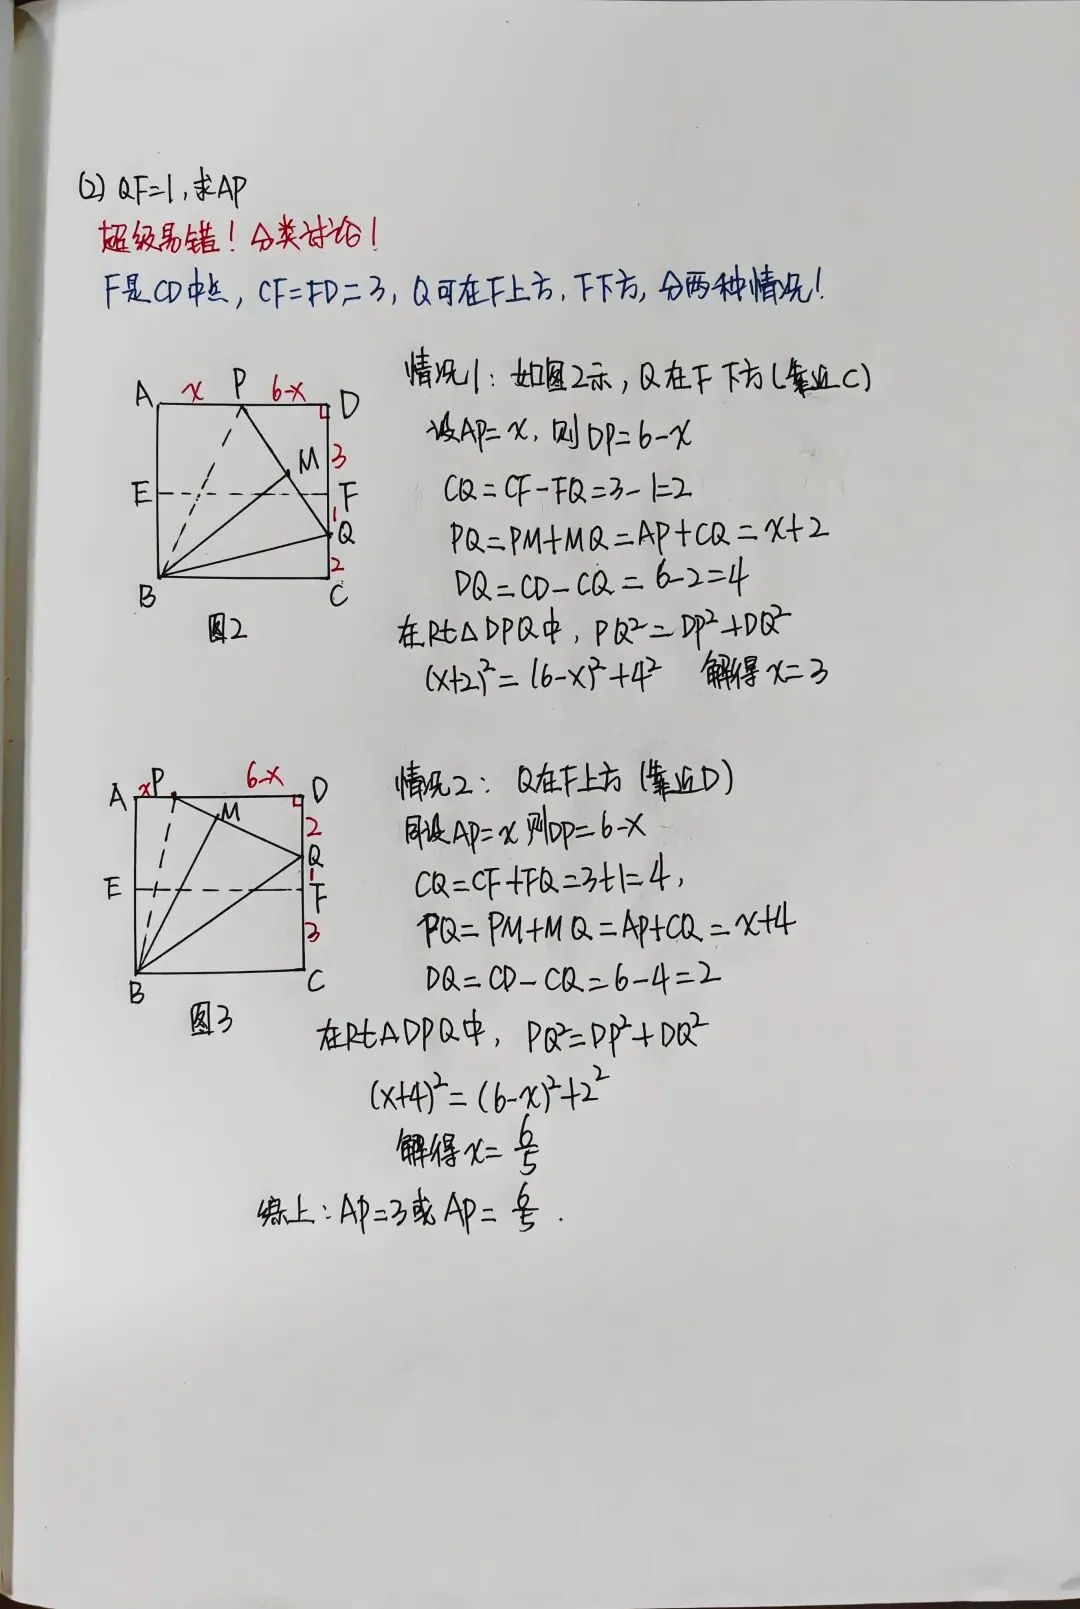 (2) QF=1,求AP
超级易错!分类讨论!
F是CD中点, CF=FD=3, Q可在F上方,F下方,分两种情况!
A x P 6-x D
M 3
E F
1
Q
2
B C
图2
情况1: 如图2示, Q在F下方(靠近C)
设AP=x, 则DP=6-x
CQ=CF-FQ=3-1=2
PQ=PM+MQ=AP+CQ=x+2
DQ=CD-CQ=6-2=4
在Rt△DPQ中, PQ²=DP²+DQ²
(x+2)²=(6-x)²+4² 解得x=3
A x P 6-x D
M 2
Q
1
E F
3
B C
图3
情况2: Q在F上方(靠近D)
同设AP=x则DP=6-x
CQ=CF+FQ=3+1=4,
PQ=PM+MQ=AP+CQ=x+4
DQ=CD-CQ=6-4=2
在Rt△DPQ中, PQ²=DP²+DQ²
(x+4)²=(6-x)²+2²
解得x=6/5
综上:AP=3或AP=6/5.